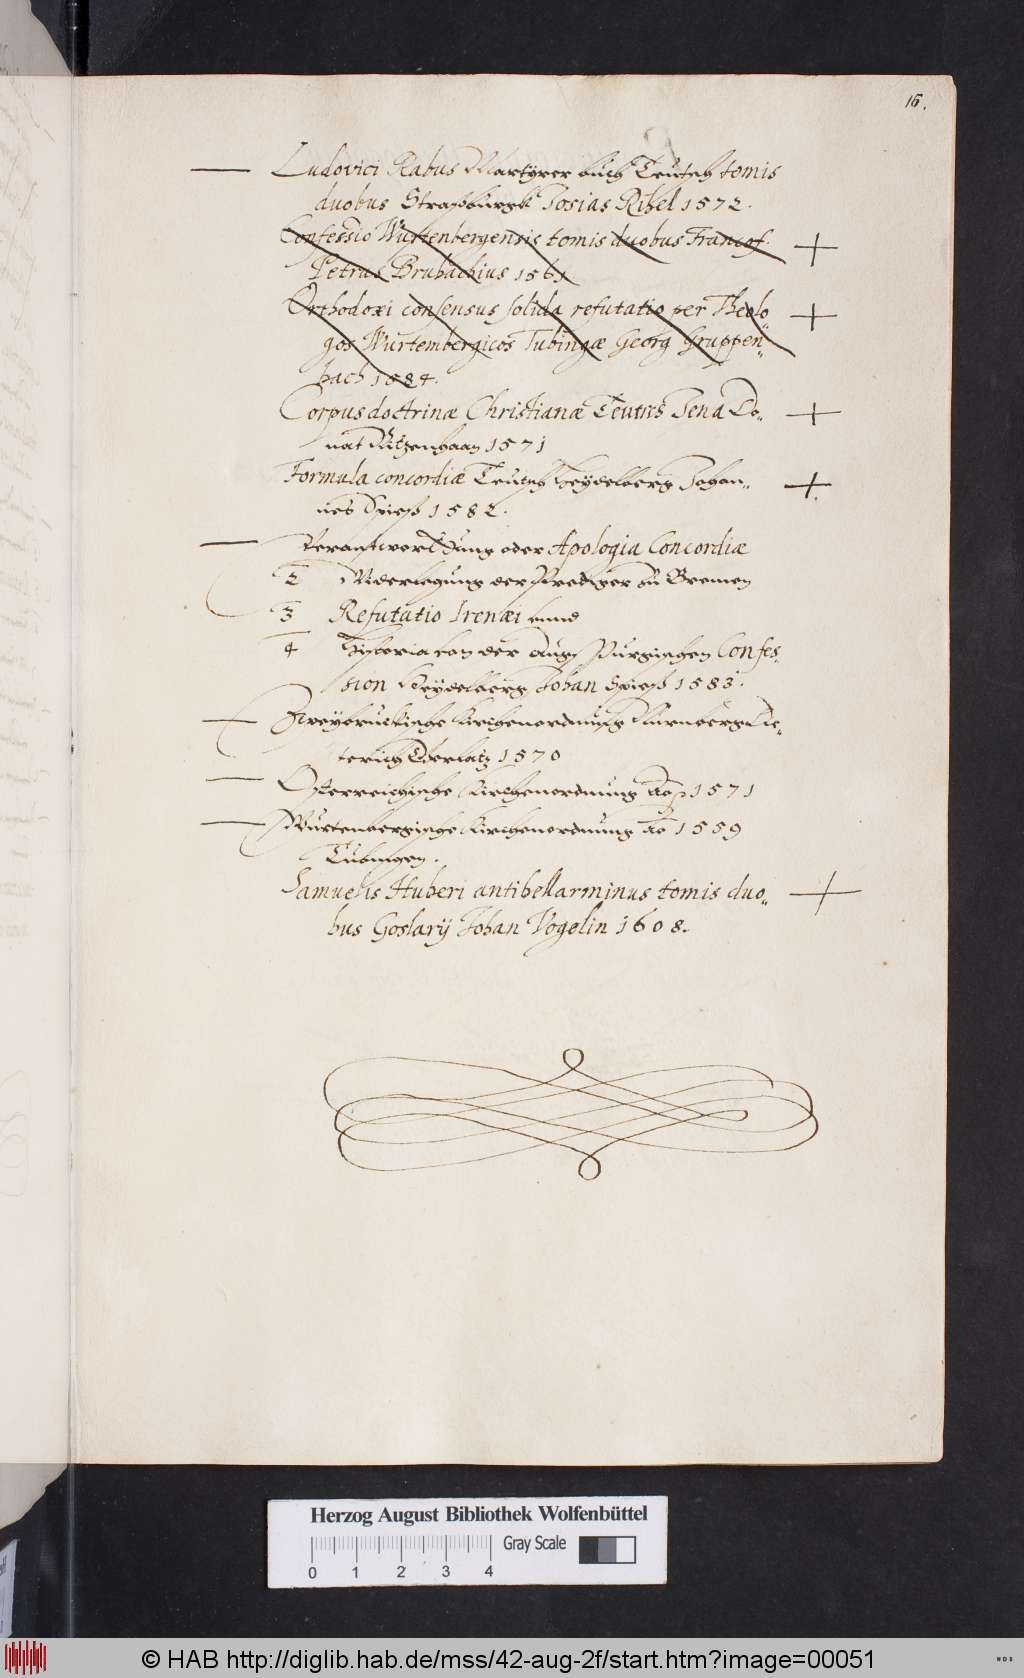 16.
Ludovici Rabus Martyrer buch Teutsch tomis
duobus Straßburgk Josias Rihel 1572.
Confessio Wurtenbergensis tomis duobus Francof.
Petrus Brubachius 1561
Orthodoxi consensus solida refutatio per Theolo„
gos Wurtembergicos Tubingæ Georg Gruppen„
bach 1584.
Corpus doctrinæ Christianæ Teutsch Jena Do„
nat Ritzenhaan 1571
Formula concordiæ Teutsch Heydelberg Johan„
nes Spieß 1582.
Verantworttung oder Apologia Concordiæ
2 Niderlegung der Prediger zu Bremen
3 Refutatio Irenæi unnd
4 Historia von der Augspurgischen Confes„
sion Heydelberg Johan Spieß 1583.
Zweybruckische Kirchenordnung Nurnberg Die„
terich 1570
Osterreichische Kirchenordnung Ao 1571
Wurtenbergische Kirchenordnung Ao 1559
Tubingen.
Samuelis Huberi antibellarminus tomis duo„
bus Goslarij Johan Vogelin 1608.
Herzog August Bibliothek Wolfenbüttel
Gray Scale
0 1 2 3 4
© HAB http://diglib.hab.de/mss/42-aug-2f/start.htm?image=00051